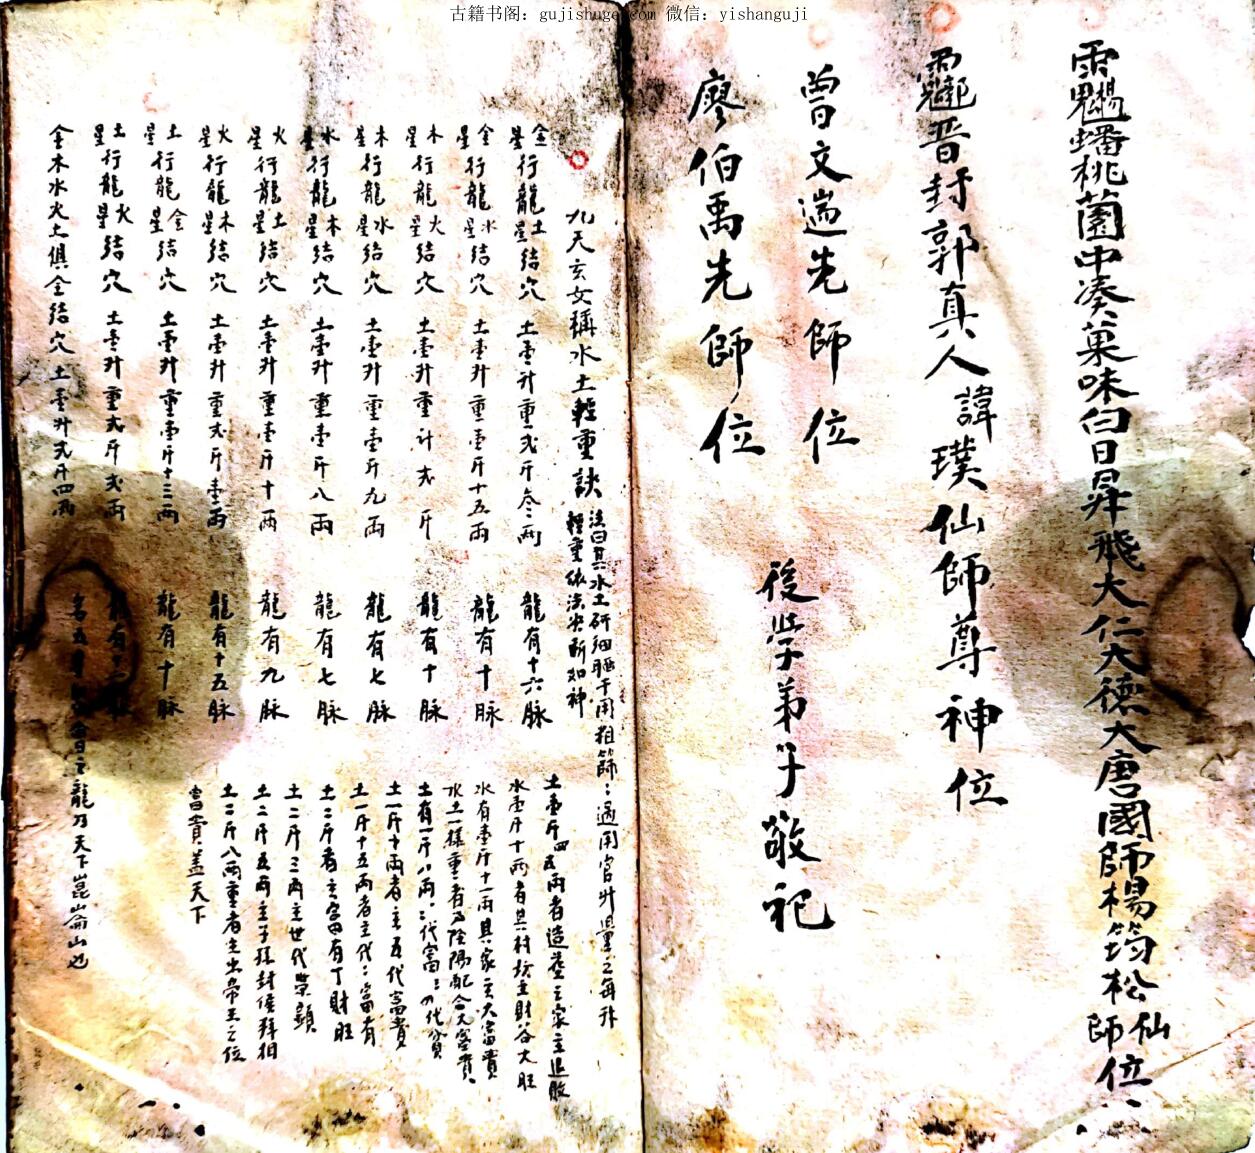 古籍书阁：gujishuge.com 微信：yishanguji
蟠桃薗中凑菓味白日昇飛大仁大德大唐國師楊筠松仙師位
晋封郭真人諱璞仙師尊神位
曾文遄先師位
廖伯禹先師位
後学弟子敬祀
九天玄女稱水土輕重訣
法曰其水土研細晒干用祖師
輕重依法决断如神
適用官升量之每升
金星行龍土星結穴 土壹升重弍斤叁兩 龍有十六脉
金星行龍水星結穴 土壹升重壹斤十五兩 龍有十脉
木星行龍火星結穴 土壹升重计弍斤 龍有十脉
木星行龍水星結穴 土壹升重壹斤九兩 龍有七脉
水星行龍木星結穴 土壹升重壹斤八兩 龍有七脉
火星行龍土星結穴 土壹升重壹斤十兩 龍有九脉
火星行龍木星結穴 土壹升重弍斤壹兩 龍有十五脉
土星行龍金星結穴 土壹升重壹斤十三兩 龍有十脉
土星行龍火星結穴 土壹升重弍斤弍兩 龍有十脉
金木水火土俱全結穴 土壹升弍斤四兩
龍乃天下崑崙山也
土壹斤四五兩者造葬主家主退敗
水壹斤十两者其村坊主財谷大旺
水有壹斤十一兩其家主大富貴
水土一樣重者乃陰陽配合大富貴
土有一斤八兩二代富三四代貧
土一斤十兩者主五代富貴
土一斤十五兩者主代代富有
土二斤者主富有丁財旺
土二斤三两主世代荣顕
土二斤五两主子孫封侯拜相
土二斤八两重者主出帝王之位
富貴盖天下